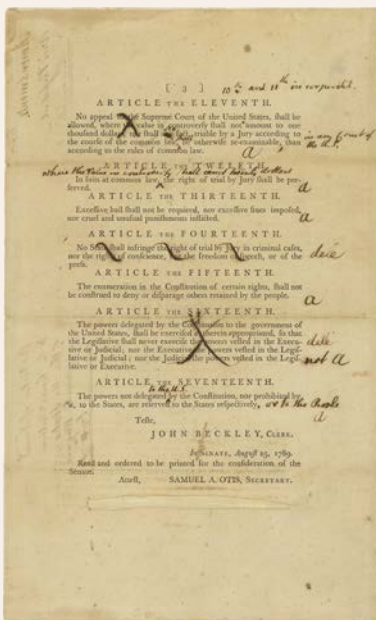 [ 3 ]
10th and 11th incorporated.
ARTICLE THE ELEVENTH.
No appeal to the Supreme Court of the United States, shall be
allowed, where the value in controversy shall not amount to one
thousand dollars, nor shall any fact, triable by a Jury according to
the course of the common law, be otherwise re-examinable, than
according to the rules of common law.
in any Court of
the U.S.
a
ARTICLE THE TWELFTH.
where the Value in controversy shall exceed twenty dollars
In suits at common law, the right of trial by Jury shall be pre-
served.
a
ARTICLE THE THIRTEENTH.
Excessive bail shall not be required, nor excessive fines imposed,
nor cruel and unusual punishments inflicted.
a
ARTICLE THE FOURTEENTH.
No State shall infringe the right of trial by Jury in criminal cases,
nor the rights of conscience, nor the freedom of speech, or of the
press.
dele
ARTICLE THE FIFTEENTH.
The enumeration in the Constitution of certain rights, shall not
be construed to deny or disparage others retained by the people.
a
ARTICLE THE SIXTEENTH.
The powers delegated by the Constitution to the government of
the United States, shall be exercised as therein appropriated, so that
the Legislative shall never exercise the powers vested in the Execu-
tive or Judicial; nor the Executive the powers vested in the Legis-
lative or Judicial; nor the Judicial the powers vested in the Legis-
lative or Executive.
dele
not a
ARTICLE THE SEVENTEENTH.
to the U.S.
The powers not delegated by the Constitution, nor prohibited by
it, to the States, are reserved to the States respectively, or to the People
a
Teste,
JOHN BECKLEY, CLERK.
In SENATE, August 25, 1789.
Read and ordered to be printed for the consideration of the
Senate.
Attest, SAMUEL A. OTIS, SECRETARY.